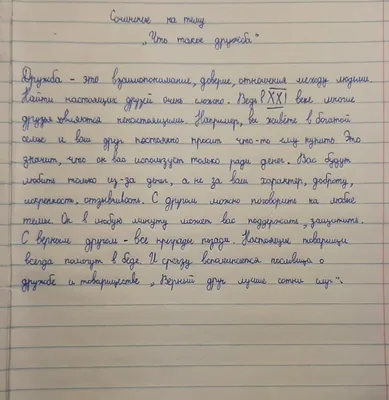 Сочинение на тему
„Что такое дружба“
Дружба - это взаимопонимание, доверие, отношения между людьми.
Найти настоящих друзей очень сложно. Ведь в XXI веке многие
друзья являются ненастоящими. Например, вы живёте в богатой
семье и ваш друг постоянно просит что-то ему купить. Это
значит, что он вас использует только ради денег. Вас будут
любить только из-за денег, а не за ваш характер, доброту,
искренность, отзывчивость. С другом можно поговорить на любые
темы. Он в любую минуту может вас поддержать, защитить.
С верным другом - все преграды позади. Настоящие товарищи
всегда помогут в беде. И сразу вспоминается пословица о
дружбе и товариществе „Верный друг лучше сотни слуг“.